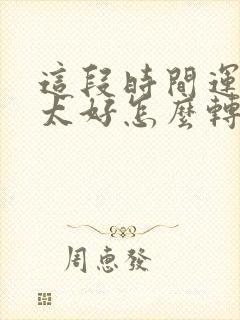 這段時間運
太好怎麼轉
周惠發